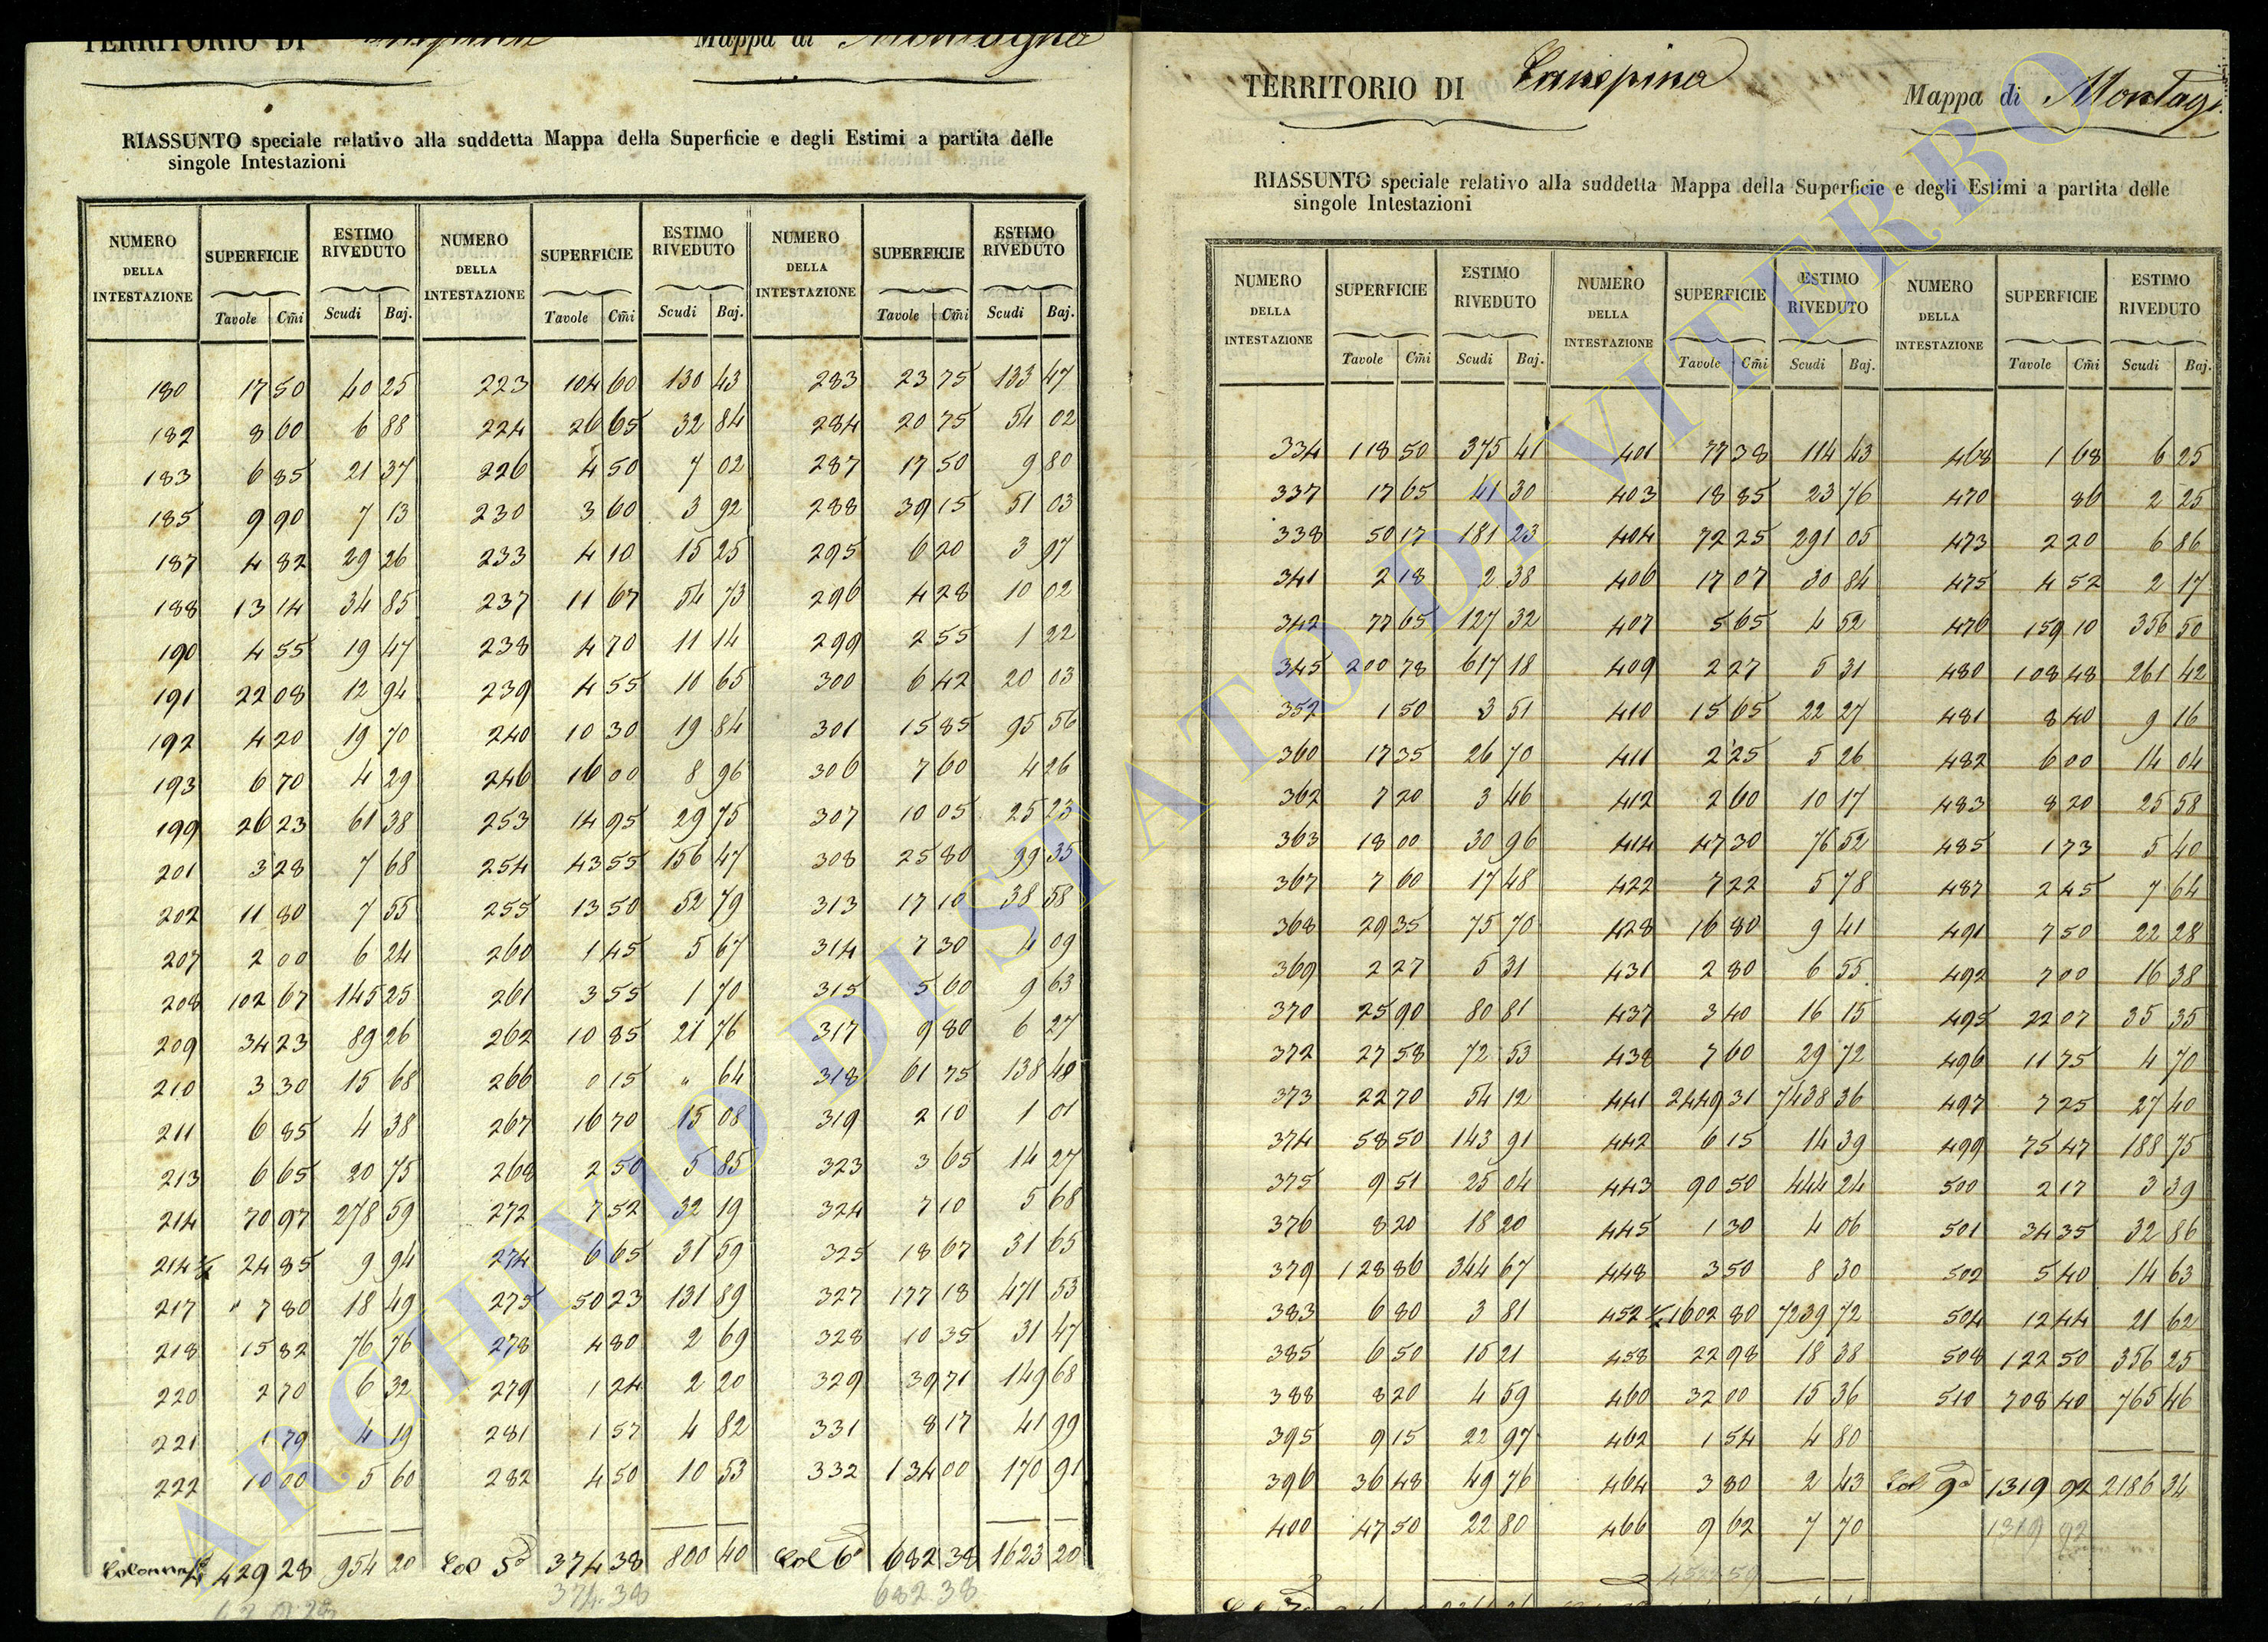 TERRITORIO DI Canepina Mappa di Montagna
RIASSUNTO speciale relativo alla suddetta Mappa della Superficie e degli Estimi a partita delle
singole Intestazioni
NUMERO DELLA INTESTAZIONE SUPERFICIE ESTIMO RIVEDUTO NUMERO DELLA INTESTAZIONE SUPERFICIE ESTIMO RIVEDUTO NUMERO DELLA INTESTAZIONE SUPERFICIE ESTIMO RIVEDUTO
Tavole Cm̃i Scudi Baj. Tavole Cm̃i Scudi Baj. Tavole Cm̃i Scudi Baj.
180 17 50 40 25 223 104 60 130 43 283 23 75 133 47
182 8 60 6 88 224 26 65 32 84 284 20 75 54 02
183 6 85 21 37 226 4 50 7 02 287 17 50 9 80
185 9 90 7 13 230 3 60 3 92 288 39 15 51 03
187 4 82 29 26 233 4 10 15 25 295 6 20 3 97
188 13 14 34 85 237 11 67 54 73 296 4 28 10 02
190 4 55 19 47 238 4 70 11 14 299 2 55 1 22
191 22 08 12 94 239 4 55 10 65 300 6 42 20 03
192 4 20 19 70 240 10 30 19 84 301 15 85 95 56
193 6 70 4 29 246 16 00 8 96 306 7 60 4 26
199 26 23 61 38 253 14 95 29 75 307 10 05 25 23
201 3 28 7 68 254 43 55 156 47 308 25 80 99 35
202 11 80 7 55 255 13 50 52 79 313 17 10 38 58
207 2 00 6 24 260 1 45 5 67 314 7 30 4 09
208 102 67 145 25 261 3 55 1 70 315 5 60 9 63
209 34 23 89 26 262 10 85 21 76 317 9 80 6 27
210 3 30 15 68 266 0 15 " 64 318 61 75 138 48
211 6 85 4 38 267 16 70 15 08 319 2 10 1 01
213 6 65 20 75 268 2 50 5 85 323 3 65 14 27
214 70 97 278 59 272 7 52 32 19 324 7 10 5 68
214 ½ 24 85 9 94 274 6 65 31 59 325 18 67 31 65
217 " 7 80 18 49 275 50 23 131 89 327 177 18 471 53
218 15 82 76 76 278 4 80 2 69 328 10 35 31 47
220 2 70 6 32 279 1 24 2 20 329 39 71 149 68
221 1 79 4 19 281 1 57 4 82 331 8 17 41 99
222 10 00 5 60 282 4 50 10 53 332 134 00 170 91
Colonna 4ª 429 28 954 20 Col 5ª 374 38 800 40 Col 6ª 682 38 1623 20
374.38 682.38
TERRITORIO DI Canepina Mappa di Montag
RIASSUNTO speciale relativo alla suddetta Mappa della Superficie e degli Estimi a partita delle
singole Intestazioni
NUMERO DELLA INTESTAZIONE SUPERFICIE ESTIMO RIVEDUTO NUMERO DELLA INTESTAZIONE SUPERFICIE ESTIMO RIVEDUTO NUMERO DELLA INTESTAZIONE SUPERFICIE ESTIMO RIVEDUTO
Tavole Cm̃i Scudi Baj. Tavole Cm̃i Scudi Baj. Tavole Cm̃i Scudi Baj.
334 118 50 375 41 401 77 38 114 43 468 1 68 6 25
337 17 65 41 30 403 18 85 23 76 470 86 2 25
338 50 17 181 23 404 72 25 291 05 473 2 20 6 86
341 2 18 2 38 406 17 07 30 84 475 4 52 2 17
342 77 65 127 32 407 5 65 4 52 476 159 10 356 50
345 200 78 617 18 409 2 27 5 31 480 108 48 261 42
352 1 50 3 51 410 15 65 22 27 481 8 40 9 16
360 17 35 26 70 411 2 25 5 26 482 6 00 14 04
362 7 20 3 46 412 2 60 10 17 483 8 20 25 58
363 18 00 30 96 414 47 30 76 52 485 1 73 5 40
367 7 60 17 48 422 7 22 5 78 487 2 45 7 64
368 29 35 75 70 428 16 80 9 41 491 7 50 22 28
369 2 27 5 31 431 2 80 6 55 492 7 00 16 38
370 25 90 80 81 437 3 40 16 15 495 22 07 35 35
372 27 58 72 53 438 7 60 29 72 496 11 75 4 70
373 22 70 54 12 441 2449 31 7438 36 497 7 25 27 40
374 58 50 143 91 442 6 15 14 39 499 75 47 188 75
375 9 51 25 04 443 90 50 444 24 500 2 17 3 39
376 8 20 18 20 445 1 30 4 06 501 34 35 32 86
379 128 86 344 67 448 3 50 8 30 502 5 40 14 63
383 6 80 3 81 452 ½ 1602 80 7239 72 504 12 44 21 62
385 6 50 15 21 458 22 98 18 38 508 122 50 356 25
388 8 20 4 59 460 32 00 15 36 510 708 40 765 46
395 9 15 22 97 462 1 54 4 80
396 36 48 49 76 464 3 80 2 43 Col 9ª 1319 92 2186 34
400 47 50 22 80 466 9 62 7 70 1319 92
ARCHIVIO DI STATO DI VITERBO